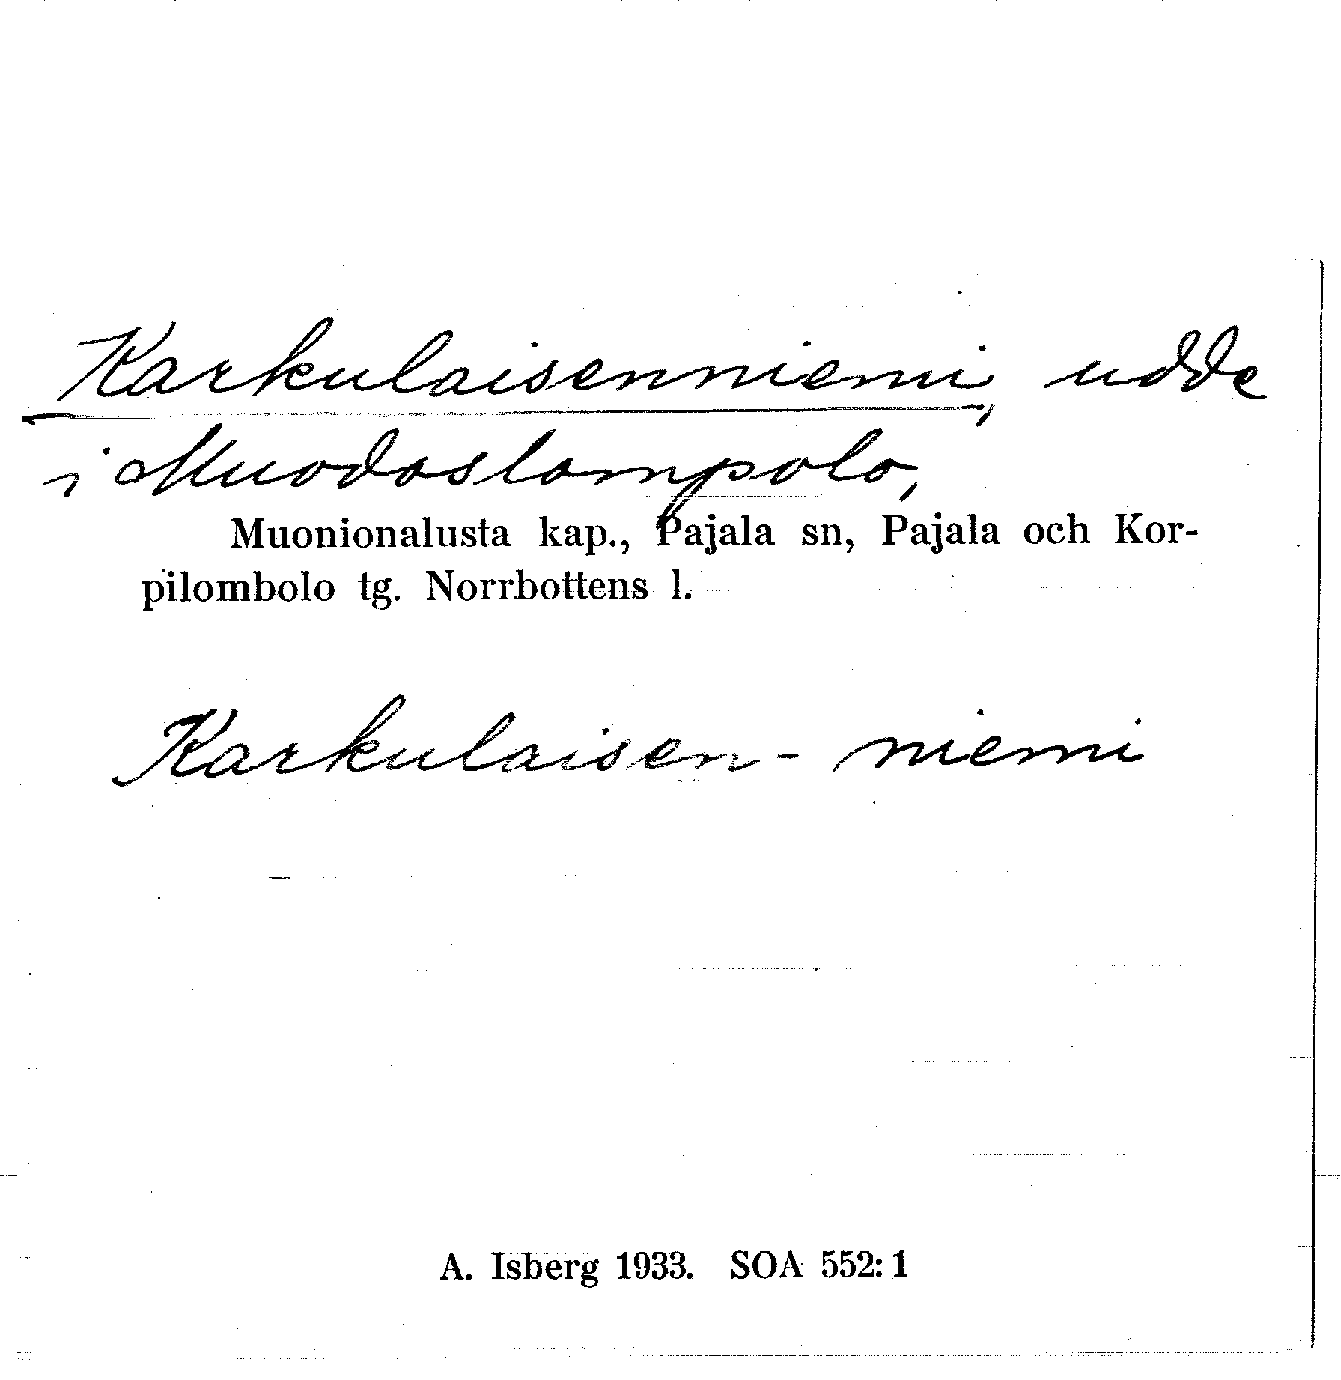 Karkulaisenniemi, udde
i Muodoslompolo,
Muonionalusta kap., Pajala sn, Pajala och Kor-
pilombolo tg. Norrbottens l.
Karkulaisen- niemi
A. Isberg 1933. SOA 552: 1